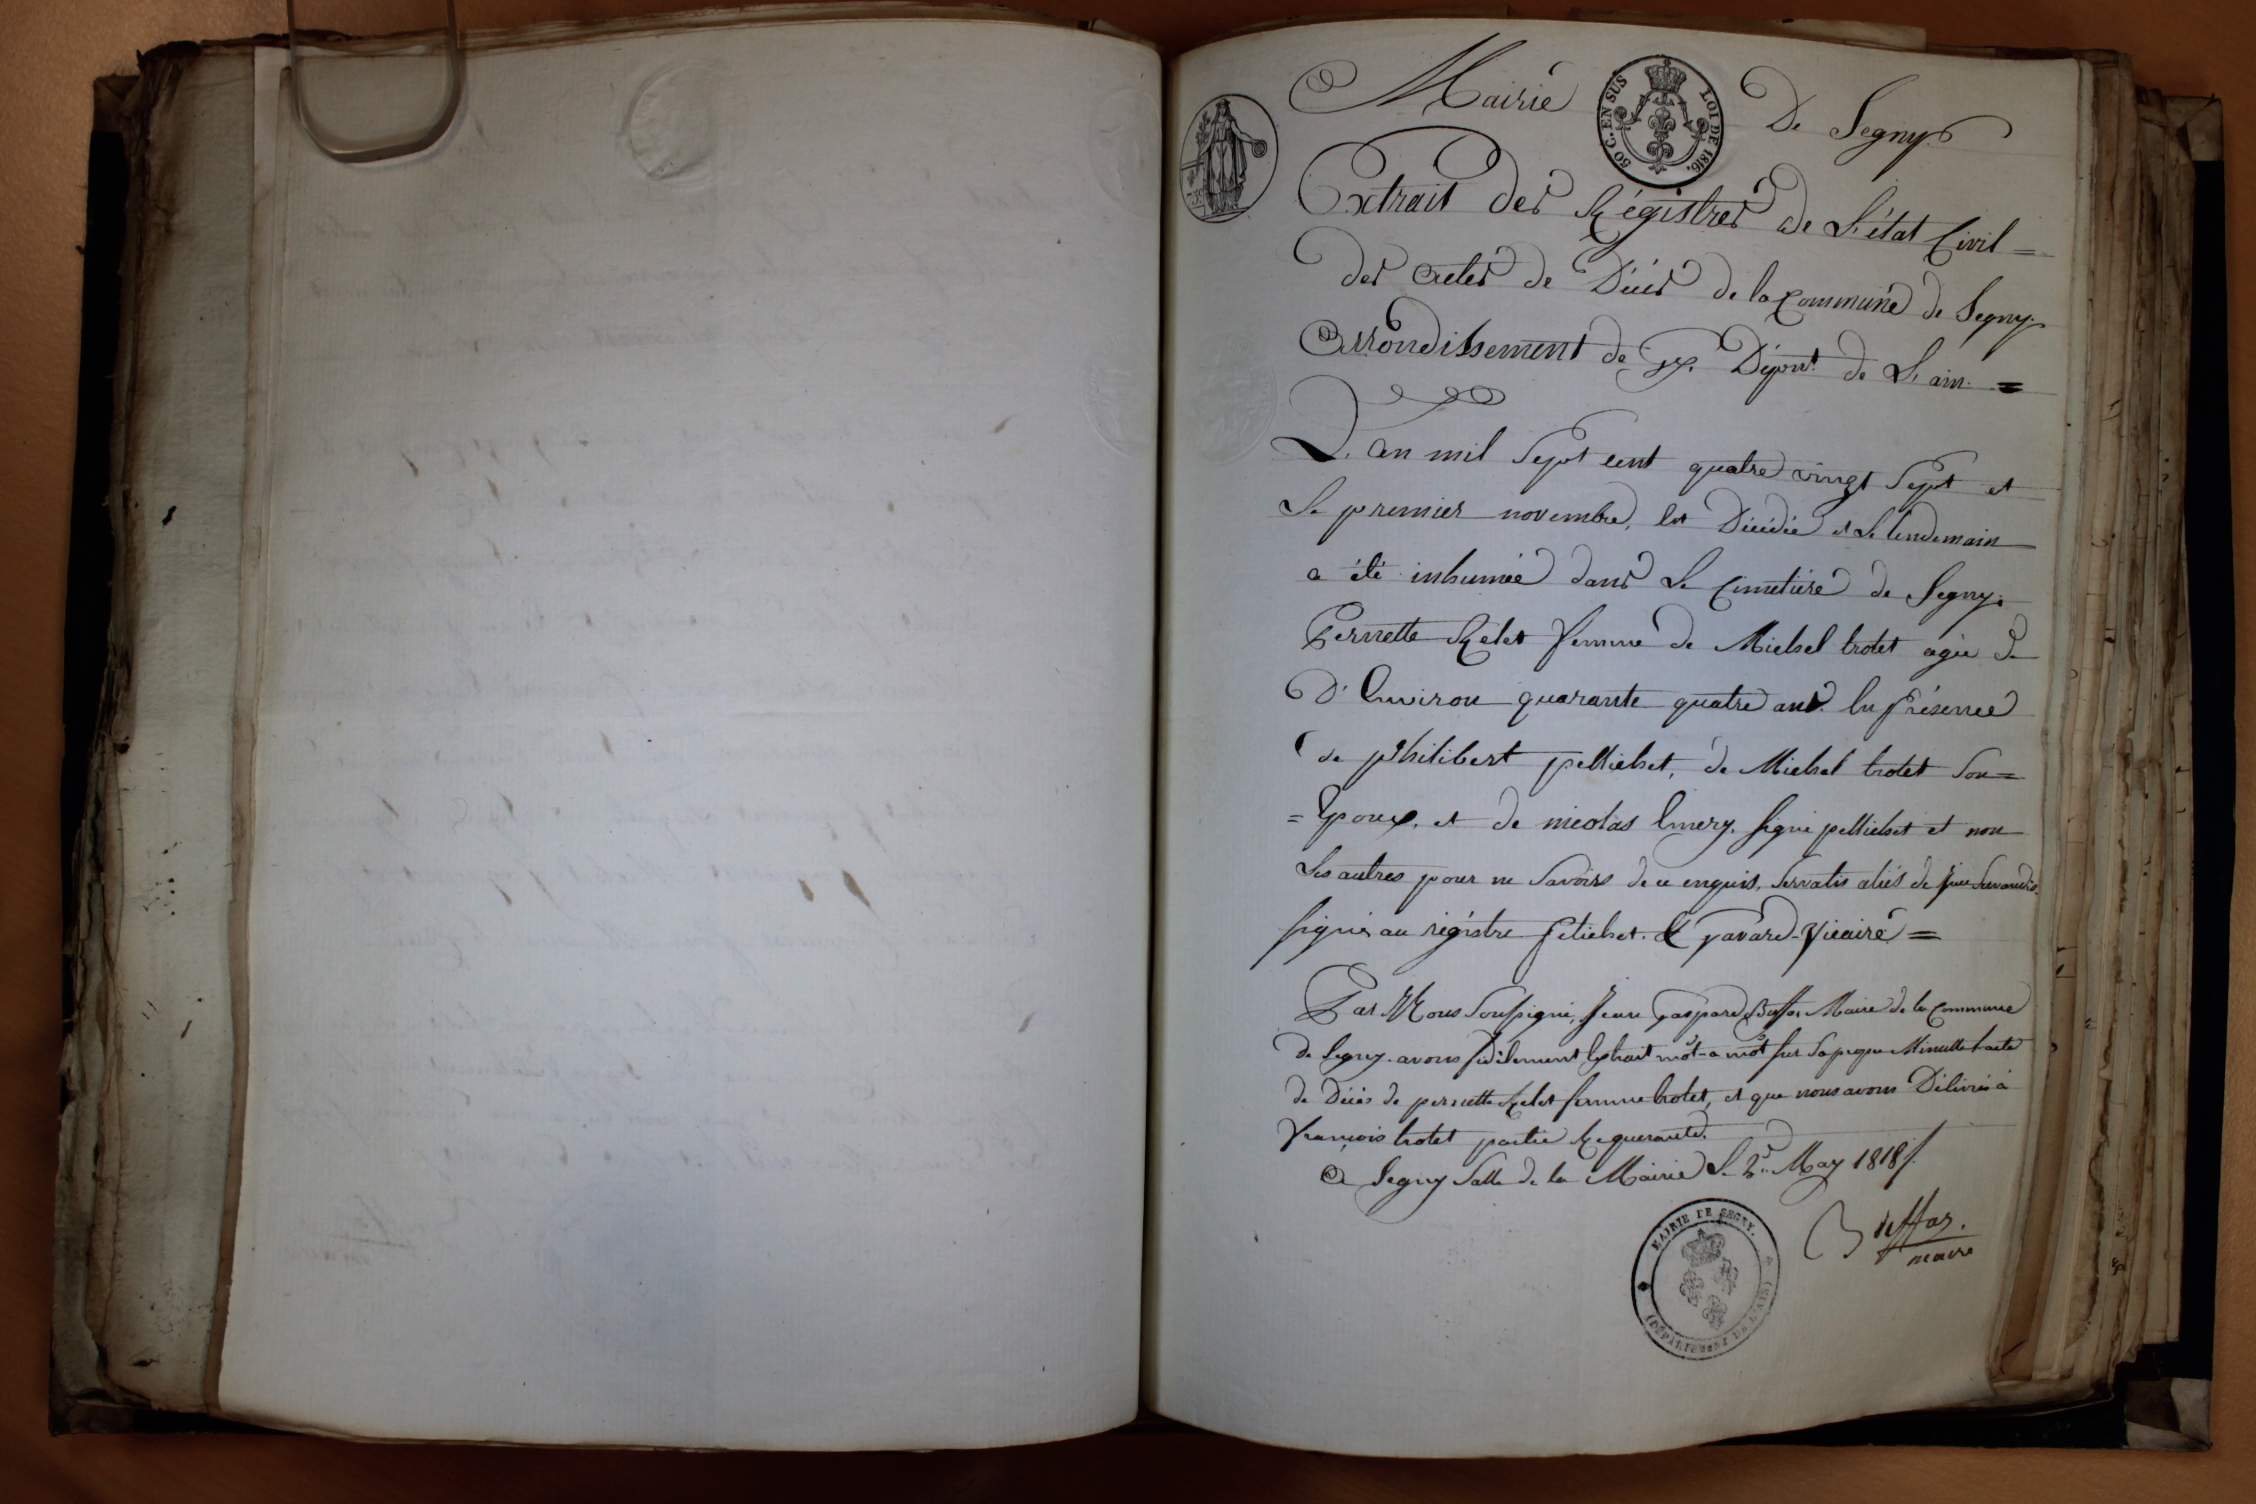 Mairie De Segny
50 C. EN SUS LOI DE 1816.
Extrait des Régistres de L'état Civil =
des actes de Décès de la Commune de Segny
Arrondissement de Gex. Dépt. de L'ain. =
L'an mil Sept cent quatre vingt Sept et
Le premier novembre, Est Décédée et Le lendemain
a été inhumée dans Le Cimetière de Segny.
Pernette Relet femme de Michel trotet agée de
D'Environ quarante quatre ans. En Présence
de philibert pellichet, de Michel trotet Son =
= Epoux, et de nicolas Emery, signé pellichet et non
Les autres pour ne Savoir de ce enquis,
signés au régistre Pelichet. & gavard Vicaire =
Par Nous Soussigné, Jean gaspard Maire de la Commune
de Segny avons fidèlement Extrait môt-a môt sur Sa propre Minutte L'acte
de Décès de pernette Relet femme trotet, et que nous avons Délivrés à
François trotet partie Requerante.
A Segny Salle de la Mairie Le May 1818
maire
MAIRIE DE SEGNY.
(DÉPARTEMENT DE L'AIN)